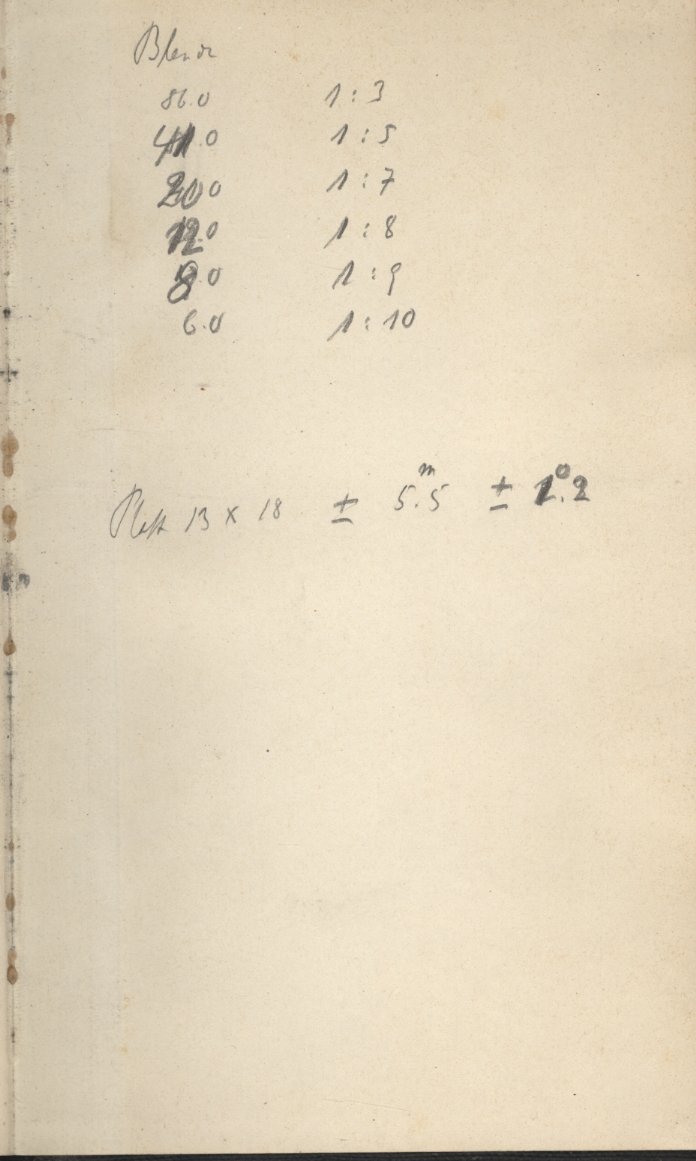 Blende
86.0 1:3
41.0 1:5
20.0 1:7
12.0 1:8
8.0 1:9
6.0 1:10
13 x 18 ± 5.5 m ± 1.2 °